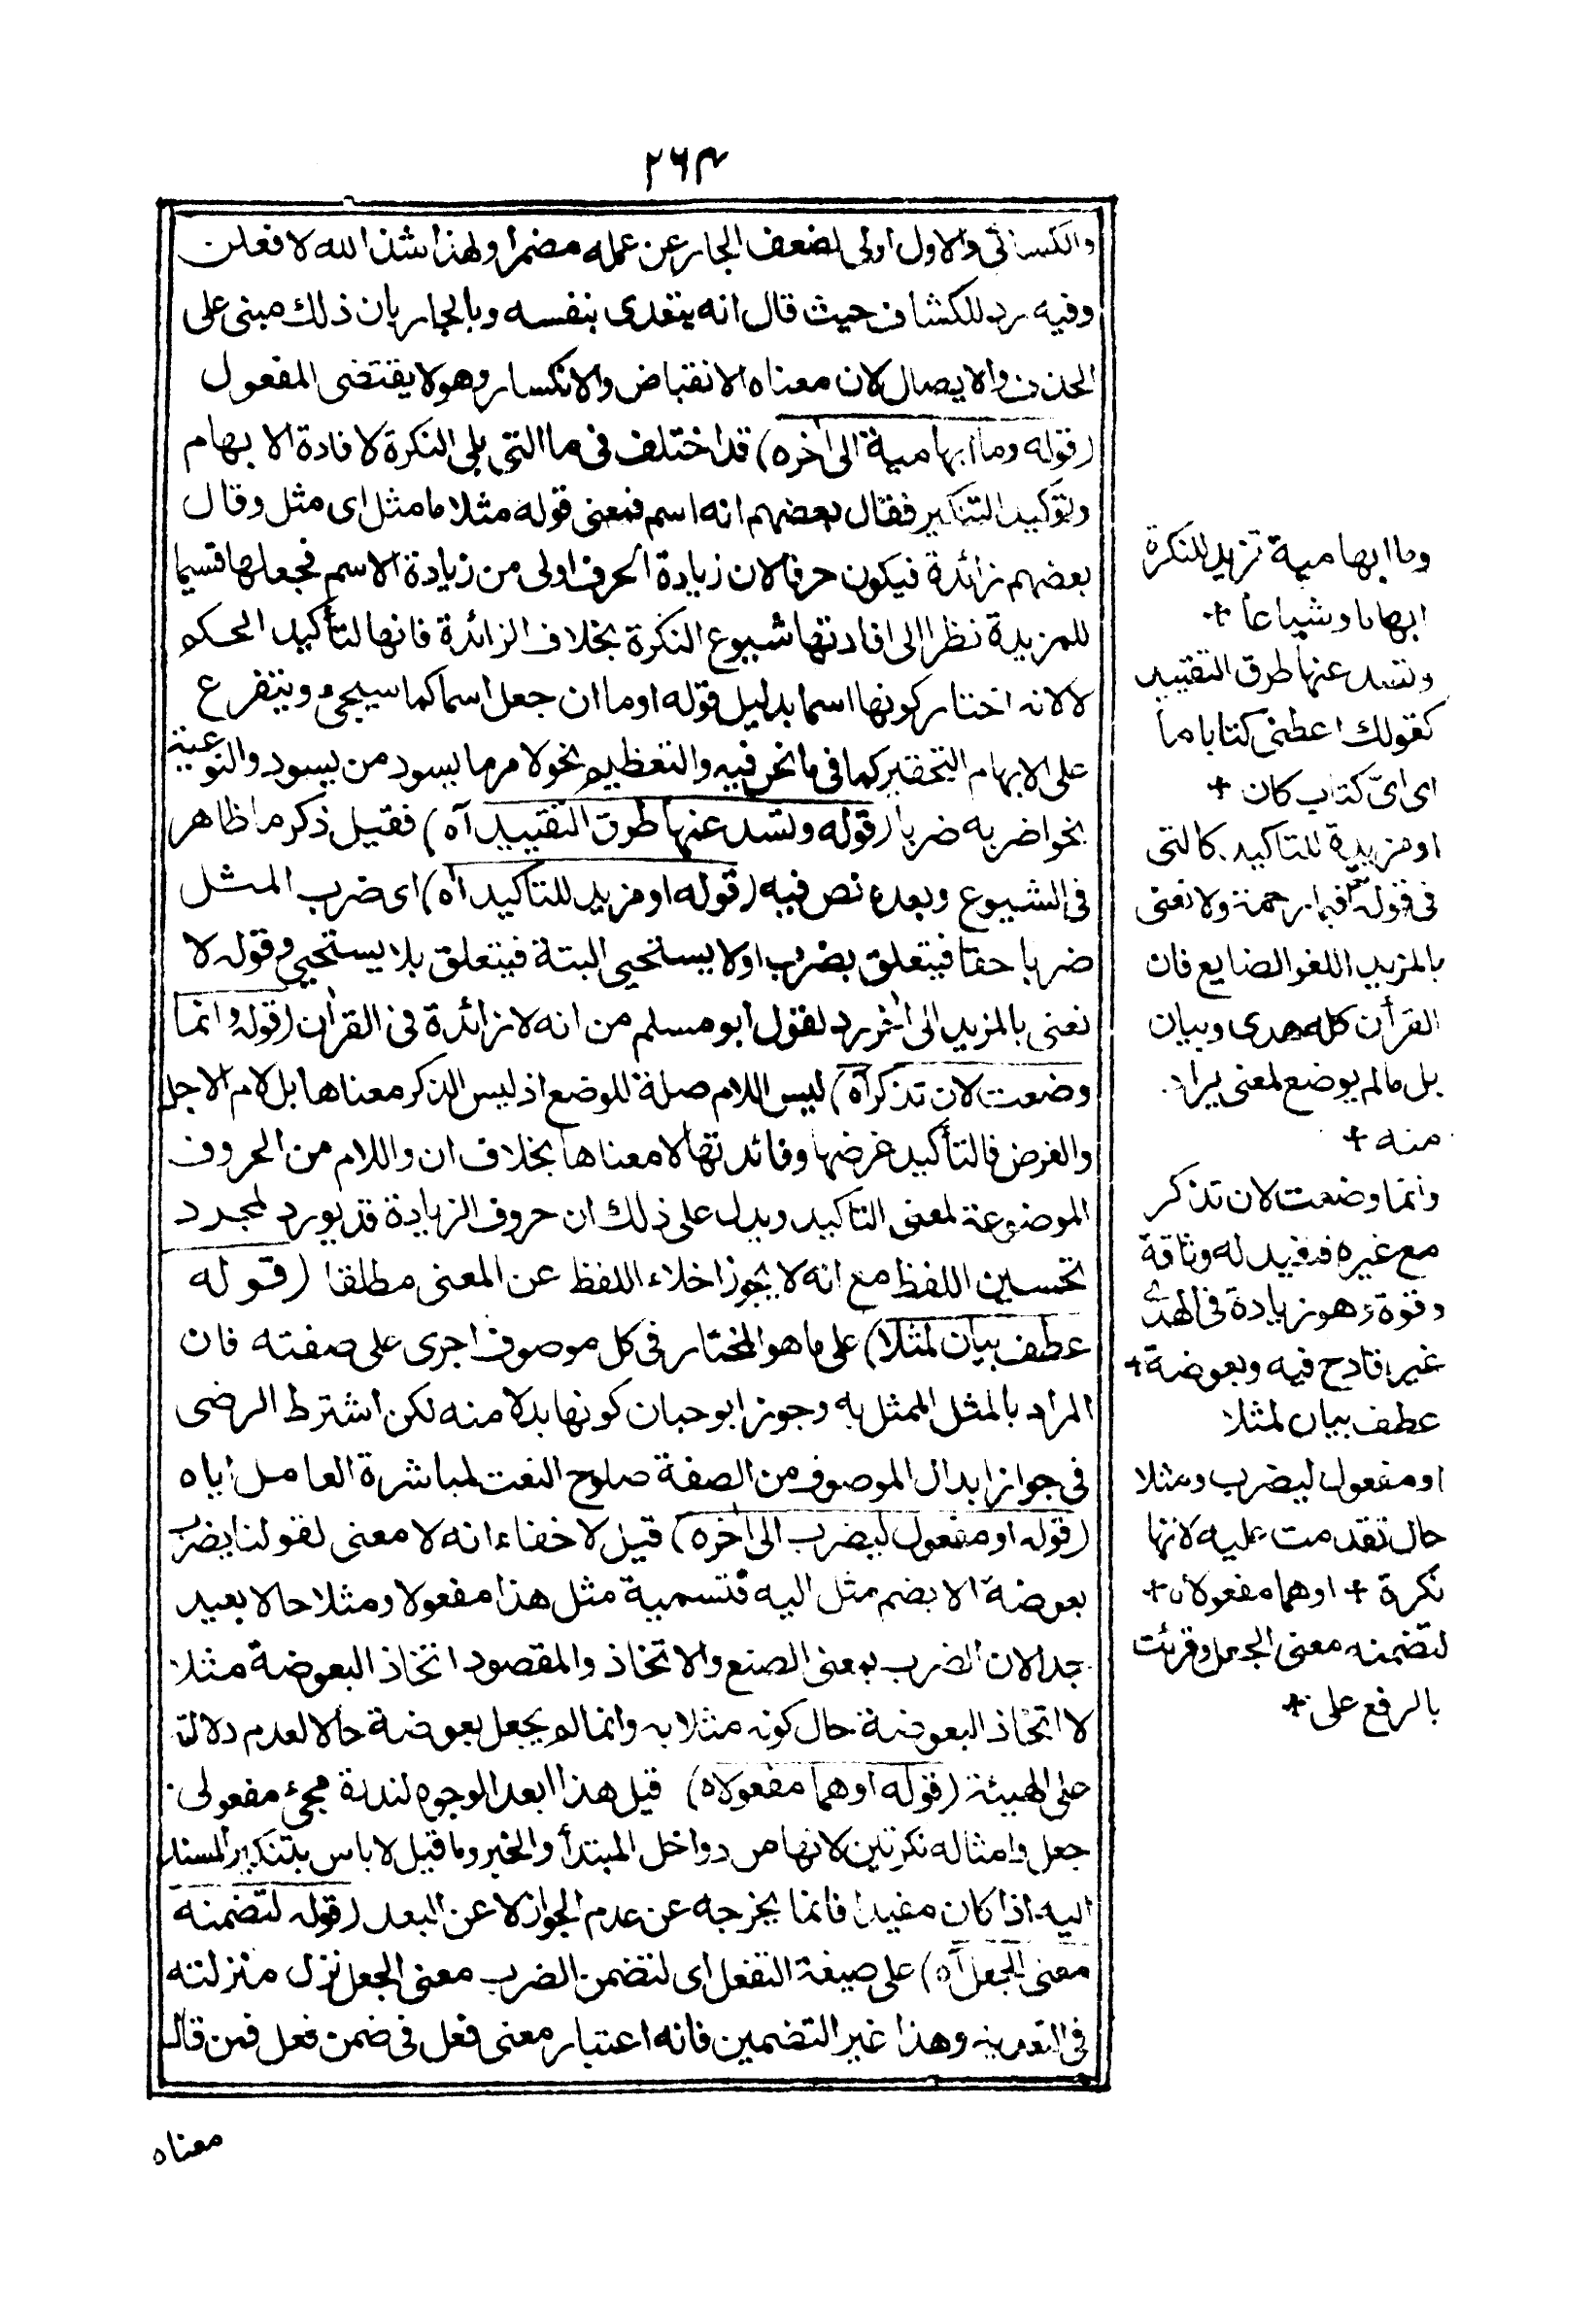 ٢٦٤
والكسائى والاول اولى لضعف الجار عن عمله مضمرا ولهذا شذ الله لافعلن
وفيه رد للكشاف حيث قال انه يتعدى بنفسه وبالجار بان ذلك مبنى على
الحذف والايصال لان معناه الانقباض والانكسار وهو لا يقتضى المفعول
(قوله وما ابهامية الى اخره) قد اختلف فى ما التى يلى النكرة لافادة الابهام
وتوكيد التنكير فقال بعضهم انه اسم فمعنى قوله مثلا ما مثل اى مثل وقال
بعضهم زائدة فيكون حرفا لان زيادة الحرف اولى من زيادة الاسم فجعلها قسيما
للمزيدة نظرا الى افادتها شيوع النكرة بخلاف الزائدة فانها لتأكيد الحكم
لا لانه اختار كونها اسما بدليل قوله او ما ان جعل اسما كما سيجئ ويتفرع
على الابهام التحقير كما فى ما نحن فيه والتعظيم نحو لامر ما يسود من يسود والنوعية
نحو اضربه ضربا (قوله وتسد عنها طرق التقييد آه) فقيل ذكر ما ظاهر
فى الشيوع وبعده نص فيه (قوله او مزيد للتاكيد آه) اى ضرب المثل
ضربا حقا فيتعلق بضرب او لا يستحيى البتة فيتعلق بلا يستحيى وقوله لا
نعنى بالمزيد الى اخره رد لقول ابو مسلم من انه لا زائدة فى القرأن (قوله وانما
وضعت لان تذكر آه) ليس اللام صلة للوضع اذ ليس الذكر معناها بل لام الاجل
والغرض فالتأكيد غرضها وفائدتها لا معناها بخلاف ان واللام من الحروف
الموضوعة لمعنى التاكيد ويدل على ذلك ان حروف الزيادة قد يورد لمجرد
تحسين اللفظ مع انه لا يجوز اخلاء اللفظ عن المعنى مطلقا (قوله
عطف بيان لمثلا) على ما هو المختار فى كل موصوف اجرى على صفته فان
المراد بالمثل الممثل به وجوز ابو حبان كونها بدلا منه لكن اشترط الرضى
فى جواز ابدال الموصوف من الصفة صلوح النعت لمباشرة العامل اياه
(قوله او مفعول ليضرب الى اخره) قيل لا خفاء انه لا معنى لقولنا يضرب
بعوضة الا بضم مثل اليه فتسمية مثل هذا مفعولا ومثلا حالا بعيد
جدا لان الضرب بمعنى الصنع والاتخاذ والمقصود اتخاذ البعوضة مثلا
لا اتخاذ البعوضة حال كونه مثلا به وانما لم يجعل بعوضة حالا لعدم دلالته
على الهيئة (قوله او هما مفعولاه) قيل هذا ابعد الوجوه لندرة مجئ مفعولى
جعل وامثاله نكرتين لانها من دواخل المبتدأ والخبر وما قيل لا باس بتنكير المسند
اليه اذا كان مفيدا فانما يخرجه عن عدم الجواز لا عن البعد (قوله لتضمنه
معنى الجعل آه) على صيغة التفعل اى لتضمن الضرب معنى الجعل نزل منزلته
فى التعدية وهذا غير التضمين فانه اعتبار معنى فعل فى ضمن فعل فمن قال
معناه
وما ابهامية تزيد للنكرة
ابهاما وشياعا +
وتسد عنها طرق التقييد
كقولك اعطنى كتابا ما
اى اىّ كتاب كان +
او مزيدة للتاكيد كالتى
فى قوله فبما رحمة ولا نعنى
بالمزيد اللغو الضايع فان
القرأن كله هدى وبيان
بل ما لم يوضع لمعنى يراد
منه +
وانما وضعت لان تذكر
مع غيره فتفيد له وثاقة
وقوة وهو زيادة فى الهدى
غير قادح فيه وبعوضة +
عطف بيان لمثلا
او مفعول ليضرب ومثلا
حال تقدمت عليه لانها
نكرة + او هما مفعولان +
لتضمنه معنى الجعل وقرئت
بالرفع على +